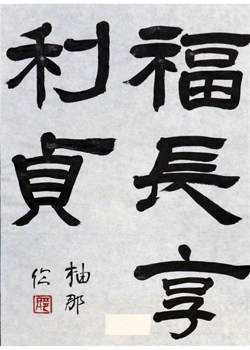 福長享
利貞
柚那